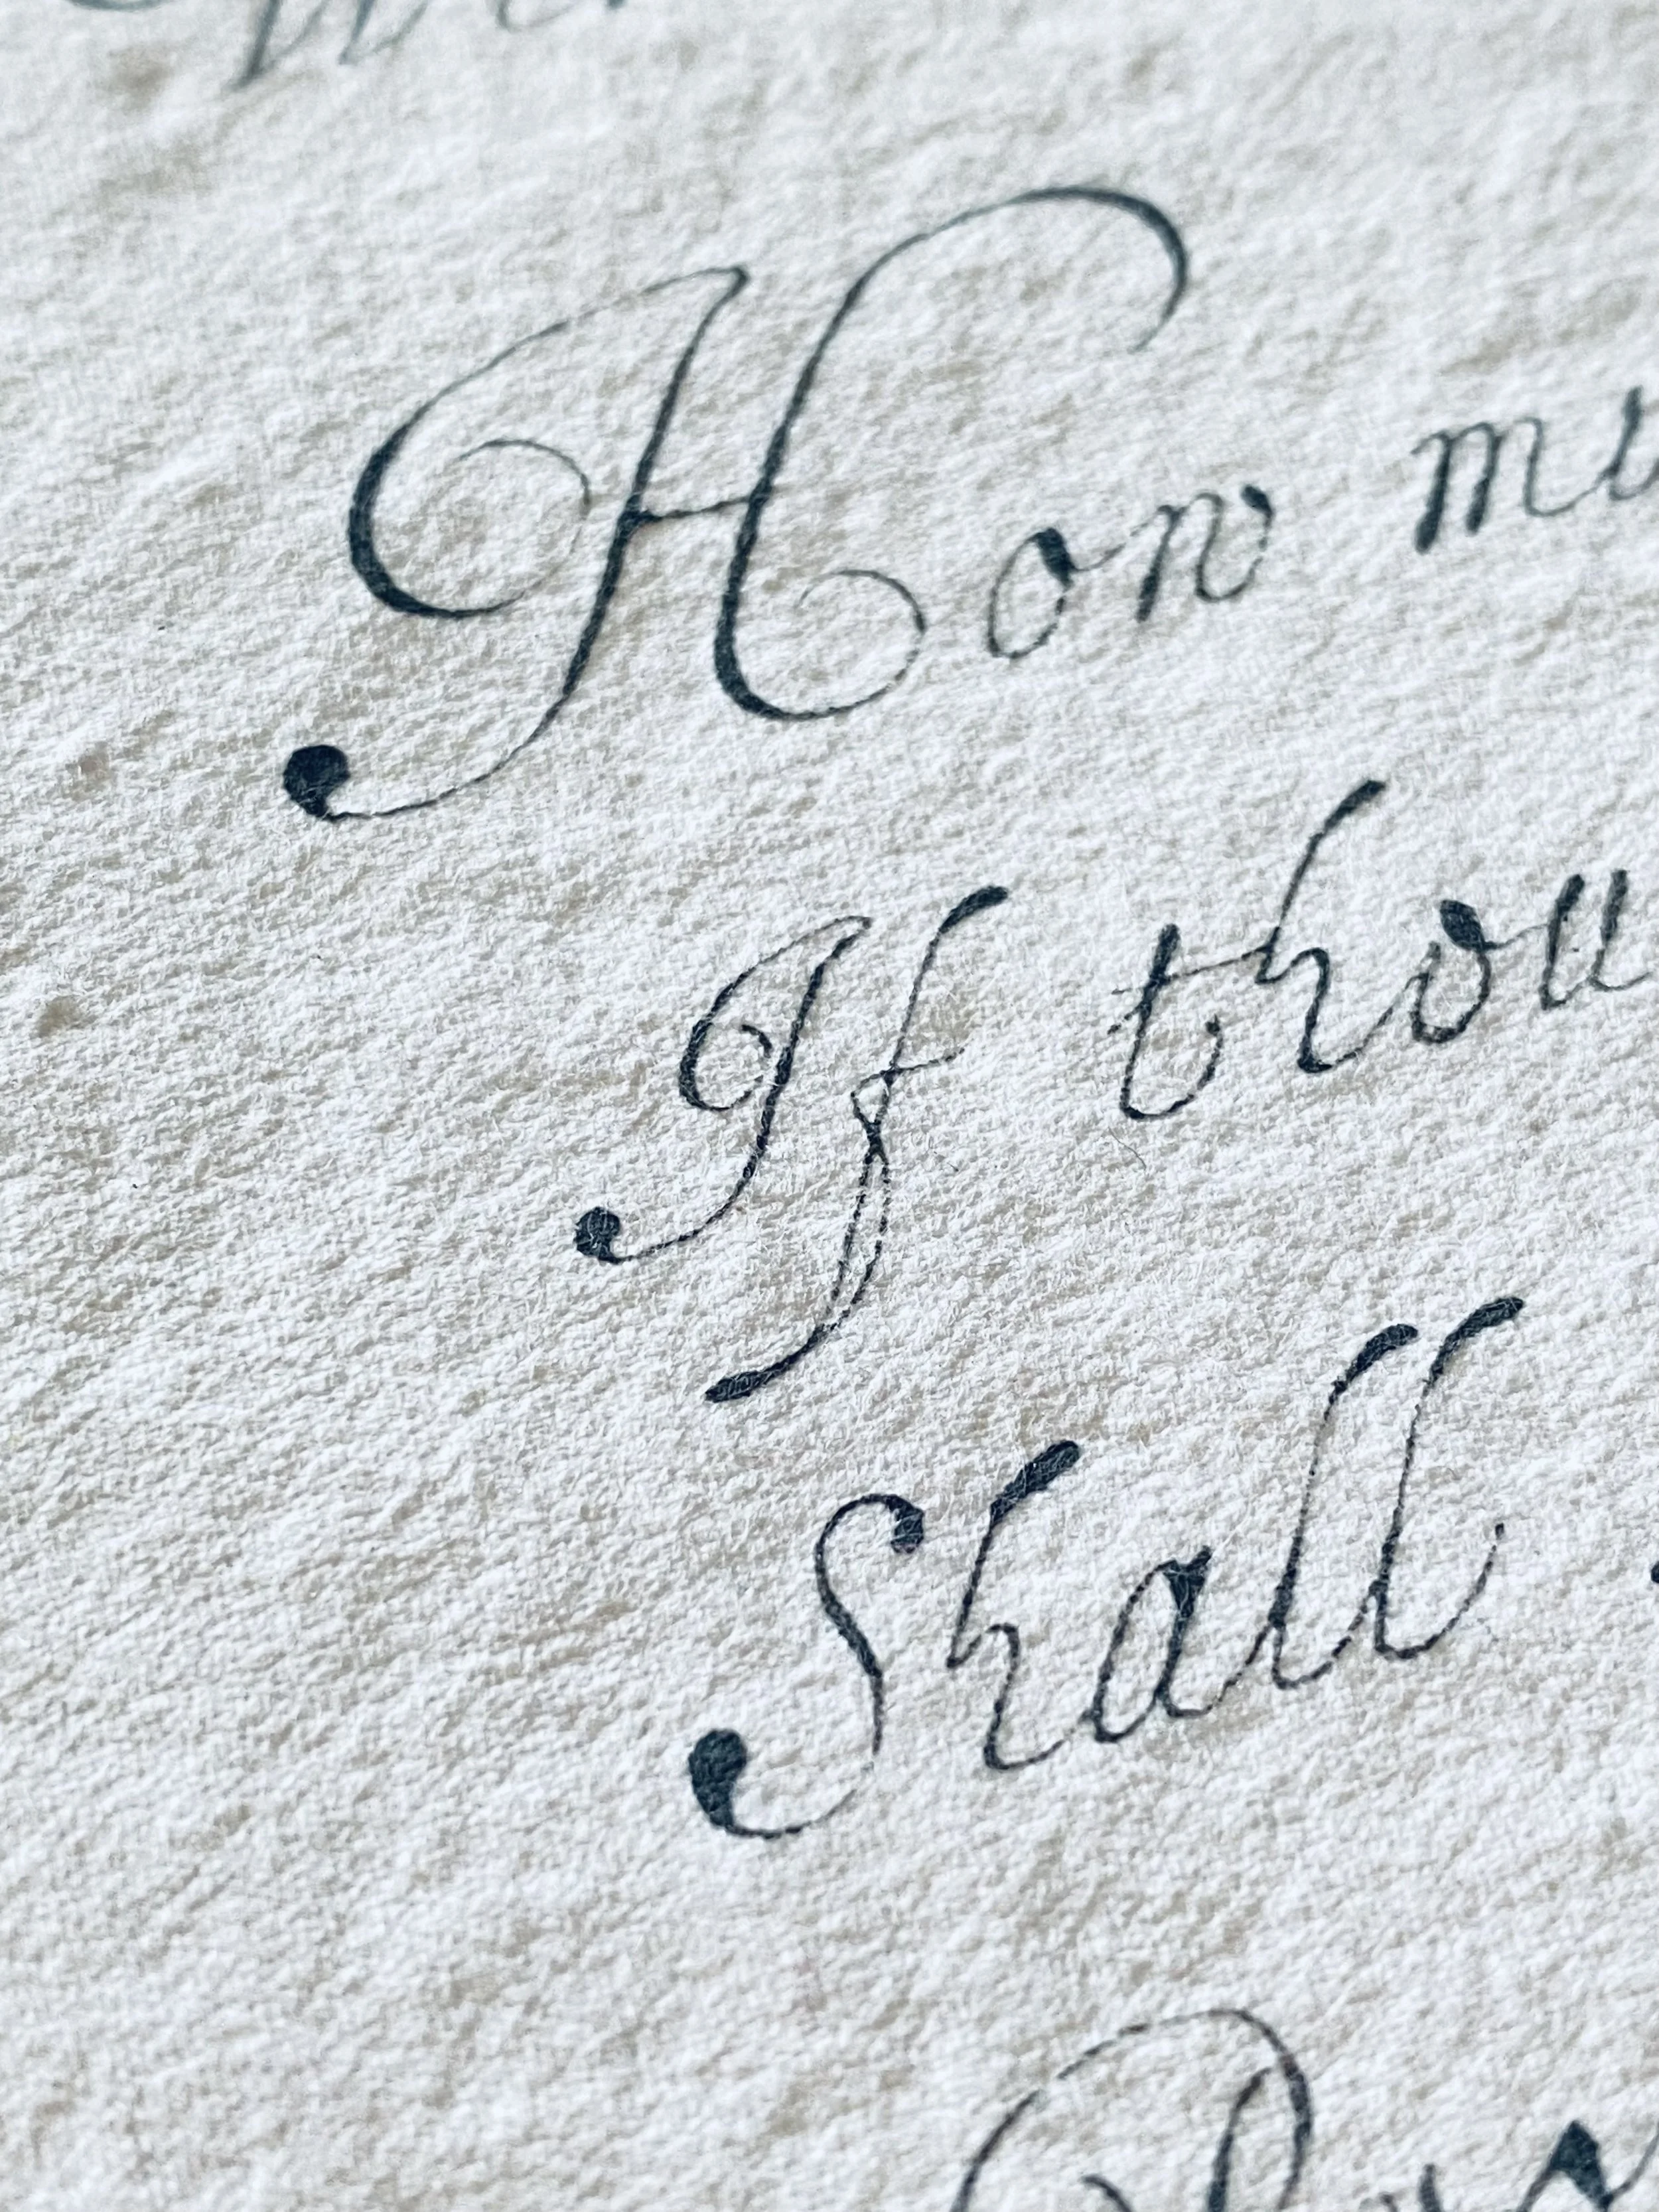 How mu
If thou
Shall